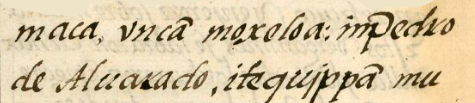 maca, vncã moxeloa: im̃ Pedro
de Aluarado, itequippã mu